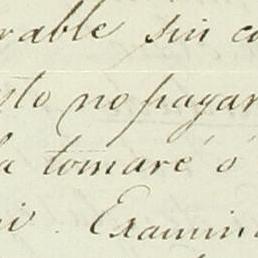 rable sin co
sto no pagar
la tomaré ó
ni. Examin